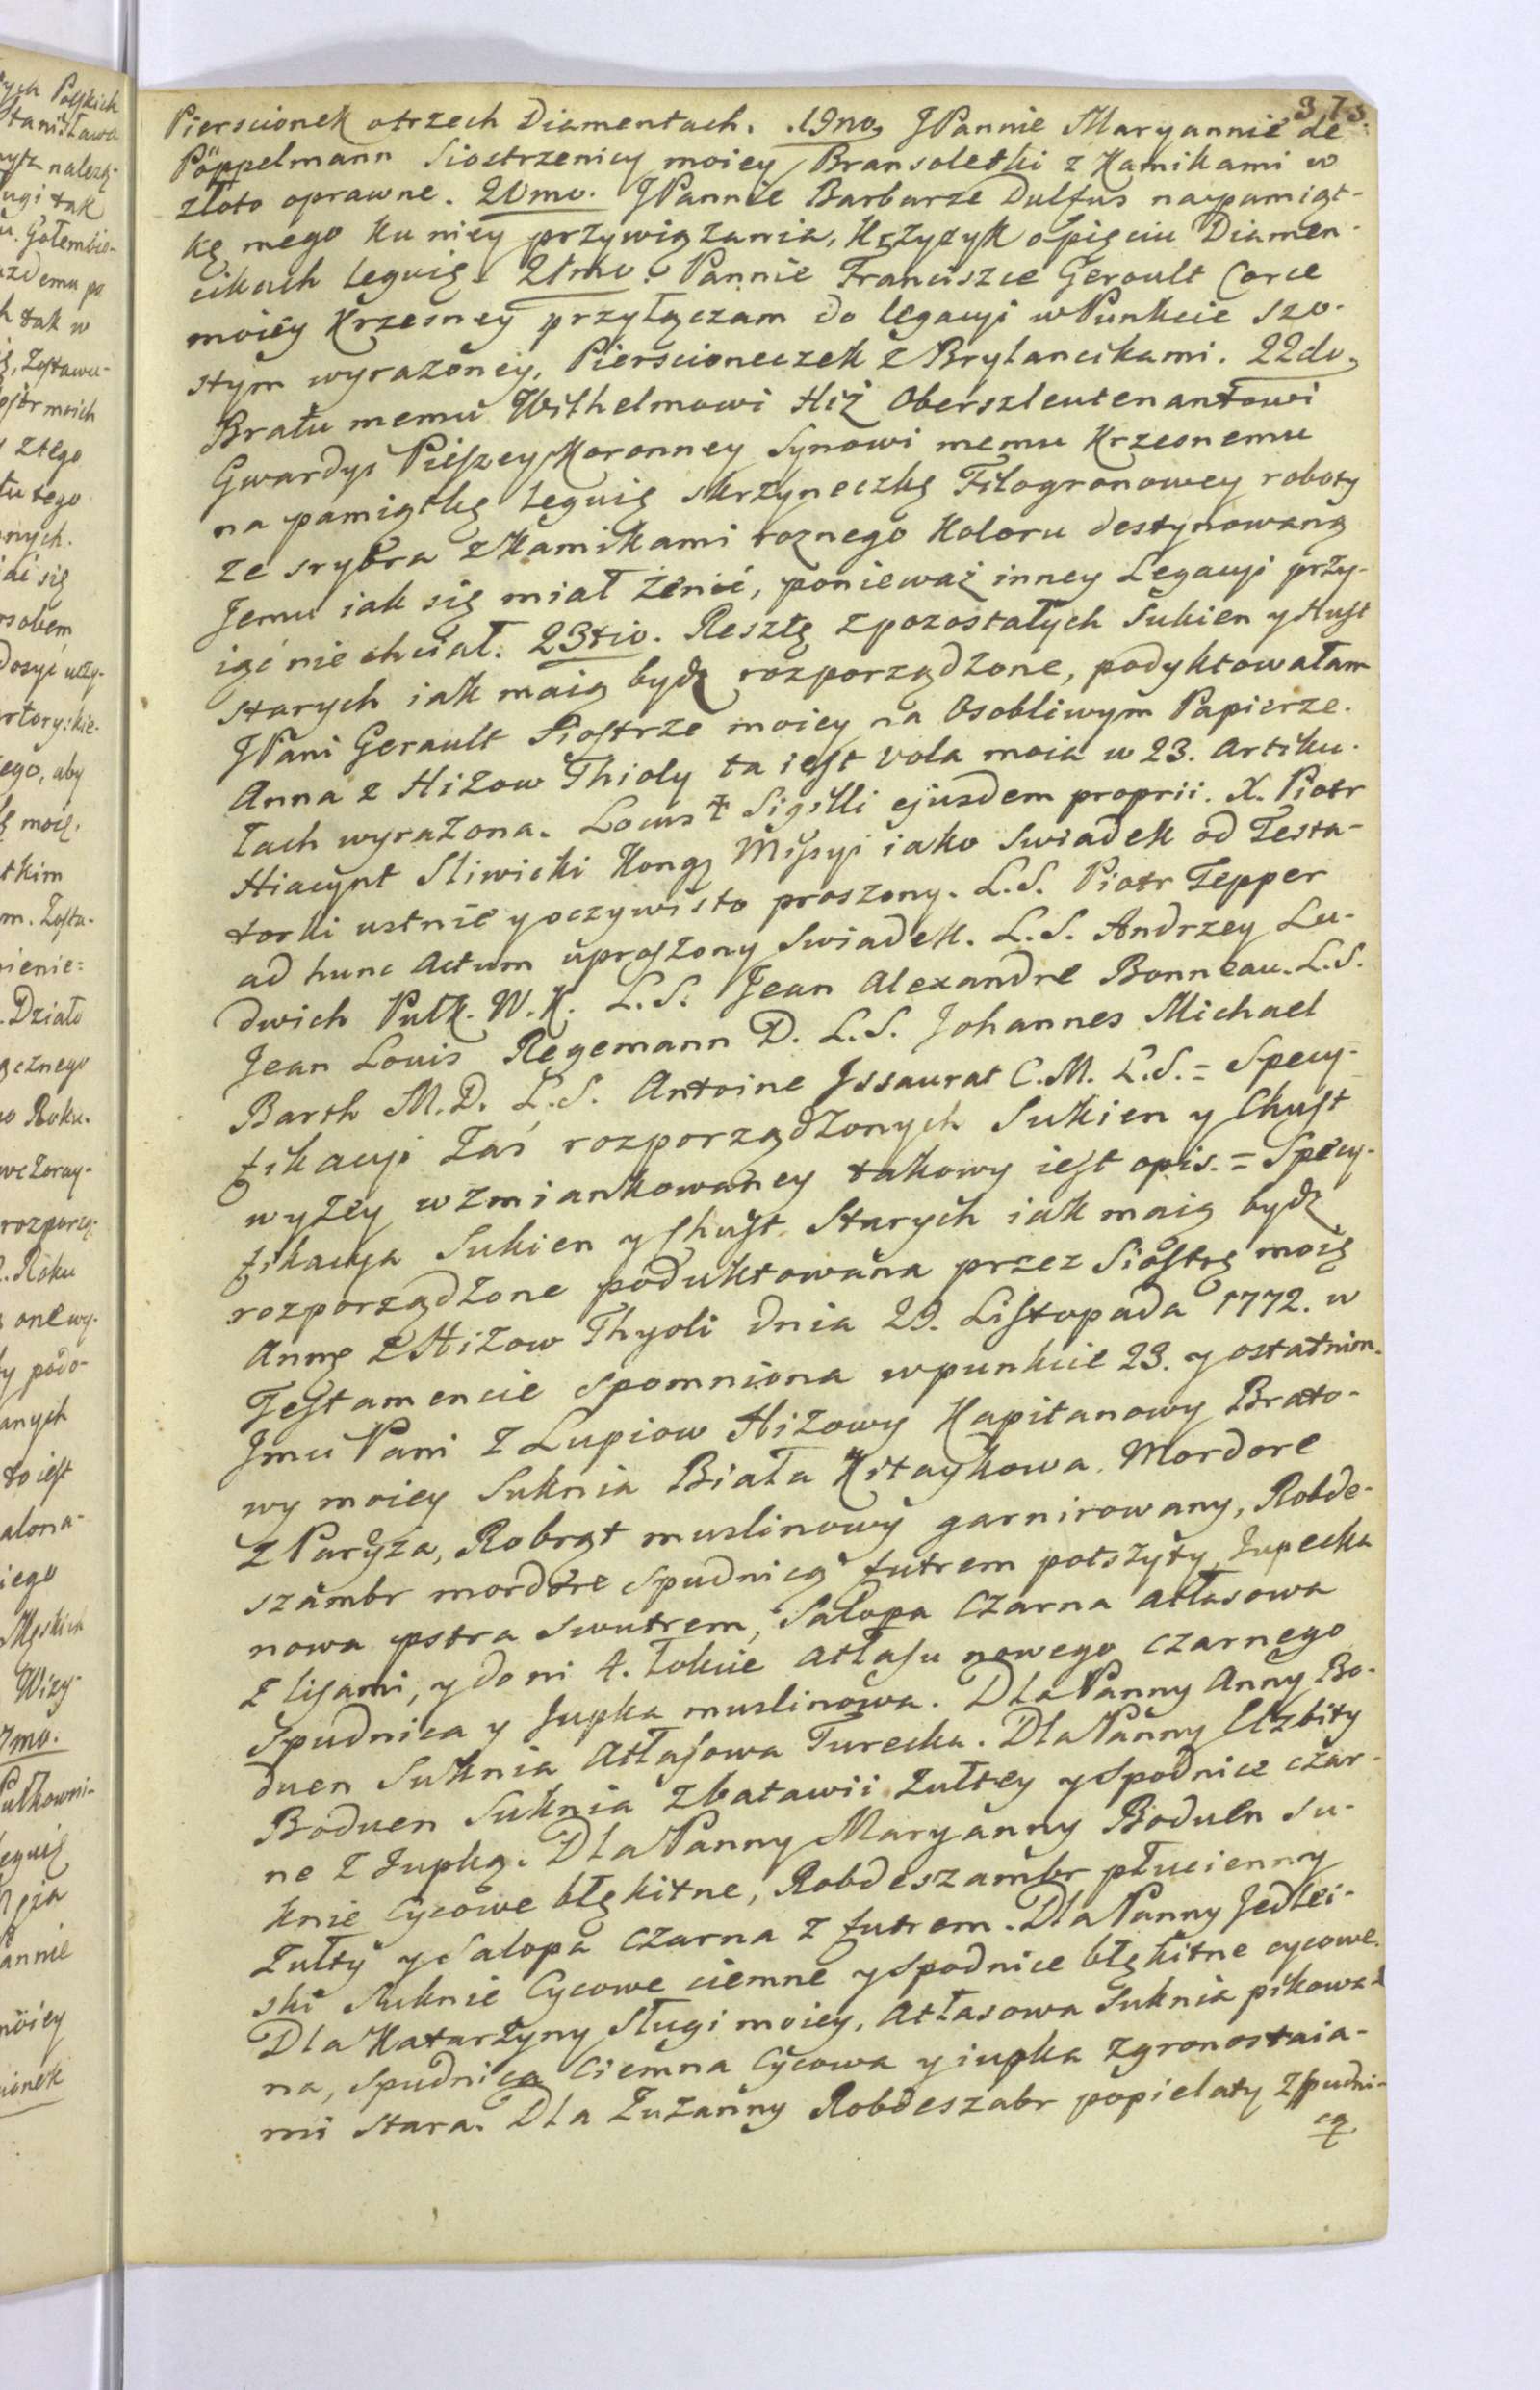 373.
Pierscionek otrzech Diamentach. 19no, JPannie Maryannie de
Pöppelmann Siostrzenicy moiey Bransoletki z Kamikami w
złoto oprawne. 20mo. JPannie Barbarze Dulfus napamiąt-
kę mego ku niey przywiązania, Krzyzyk opięciu Diamen-
cikach leguię. 21mo. Pannie Franciszce Gerault Corce
moiey Krzesney przyłączam do legacyi w Punkcie szo-
stym wyrażoney, Pierscioneczek z Brylancikami. 22do,
Bratu memu Wilhelmowi Hiż Oberszleutenantowi
Gwardyi Pieszey Koronney Synowi memu Krzesnemu
na pamiątkę leguię skrzyneczkę Filogranowey roboty
ze srybra z kamikami roznego Koloru destynowaną
Jemu iak się miał żenić, ponieważ inney Legacyi przy-
iąć nie chciał. 23tio. Resztę zpozostałych Sukien y Hust
starych iak maią bydz rozporządzone, podyktowałam
JPani Gerault Siostrze moiey na Osobliwym Papierze.
Anna z Hizow Thioly ta iest vola moia w 23. Artiku-
łach wyrażona. Locus Sigilli ejusdem proprii. X. Piotr
Hiacynt Sliwicki Kong: Missyi iako Swiadek od Testa-
torki ustnie y oczywisto proszony. L.S. Piotr Tepper
ad hunc Actum uproszony Swiadek. L.S. Andrzey Lu-
dwich Pułk. W.K. L.S. Jean Alexandre Bonneau. L.S.
Jean Louis Regemann D. L.S. Johannes Michael
Barth M.D. L.S. Antoine Issaurat C.M. L.S. = Specy-
fikacyi zaś rozporządzonych Sukien y Chust
wyżey wzmiankowaney takowy iest opis. = Specy-
fikacya Sukien y Chust Starych iak maią bydz
rozporządzone poduktowana przez Siostrę moię
Annę z Hizow Thyoli dnia 29. Listopada 1772. w
Testamencie spomniona wpunkcie 23. y ostatnim.
Jmu Pani z Lupiow Hizowy Kapitanowy Brato-
wy moiey Suknia Biała Kitaykowa. Mordore
z Paryża, Robrąt muslinowy garnirowany, Robde-
szambr mordore Spudnicą futrem potszyty, Jupecka
nowa pstra Swutrem, Salopa Czarna atłasowa
z lisami, y do ni 4. łokcie atłasu nowego czarnego
Spudnica y Jupka muslinowa. Dla Panny Anny Bo-
duen Suknia Atłasowa Turecka. Dla Panny Elzbity
Boduen Suknia zbatawii żułtey y Spodnice czar-
ne z Jupką. Dla Panny Maryanny Boduen Su-
knie Cycowe błękitne, Robdeszambr płucienny
Żułty y Salopa czarna z futrem. Dla Panny Jedlei-
ski Suknie Cycowe ciemne y Spodnice błękitne cycowe.
Dla Katarzyny Sługi moiey, Atłasowa Suknia pikowa-
na, Spudnica Ciemna Cycowa y iupka zgronostaia-
mi stara. Dla Zuzanny Robdeszabr popielaty z Spudni-
cą